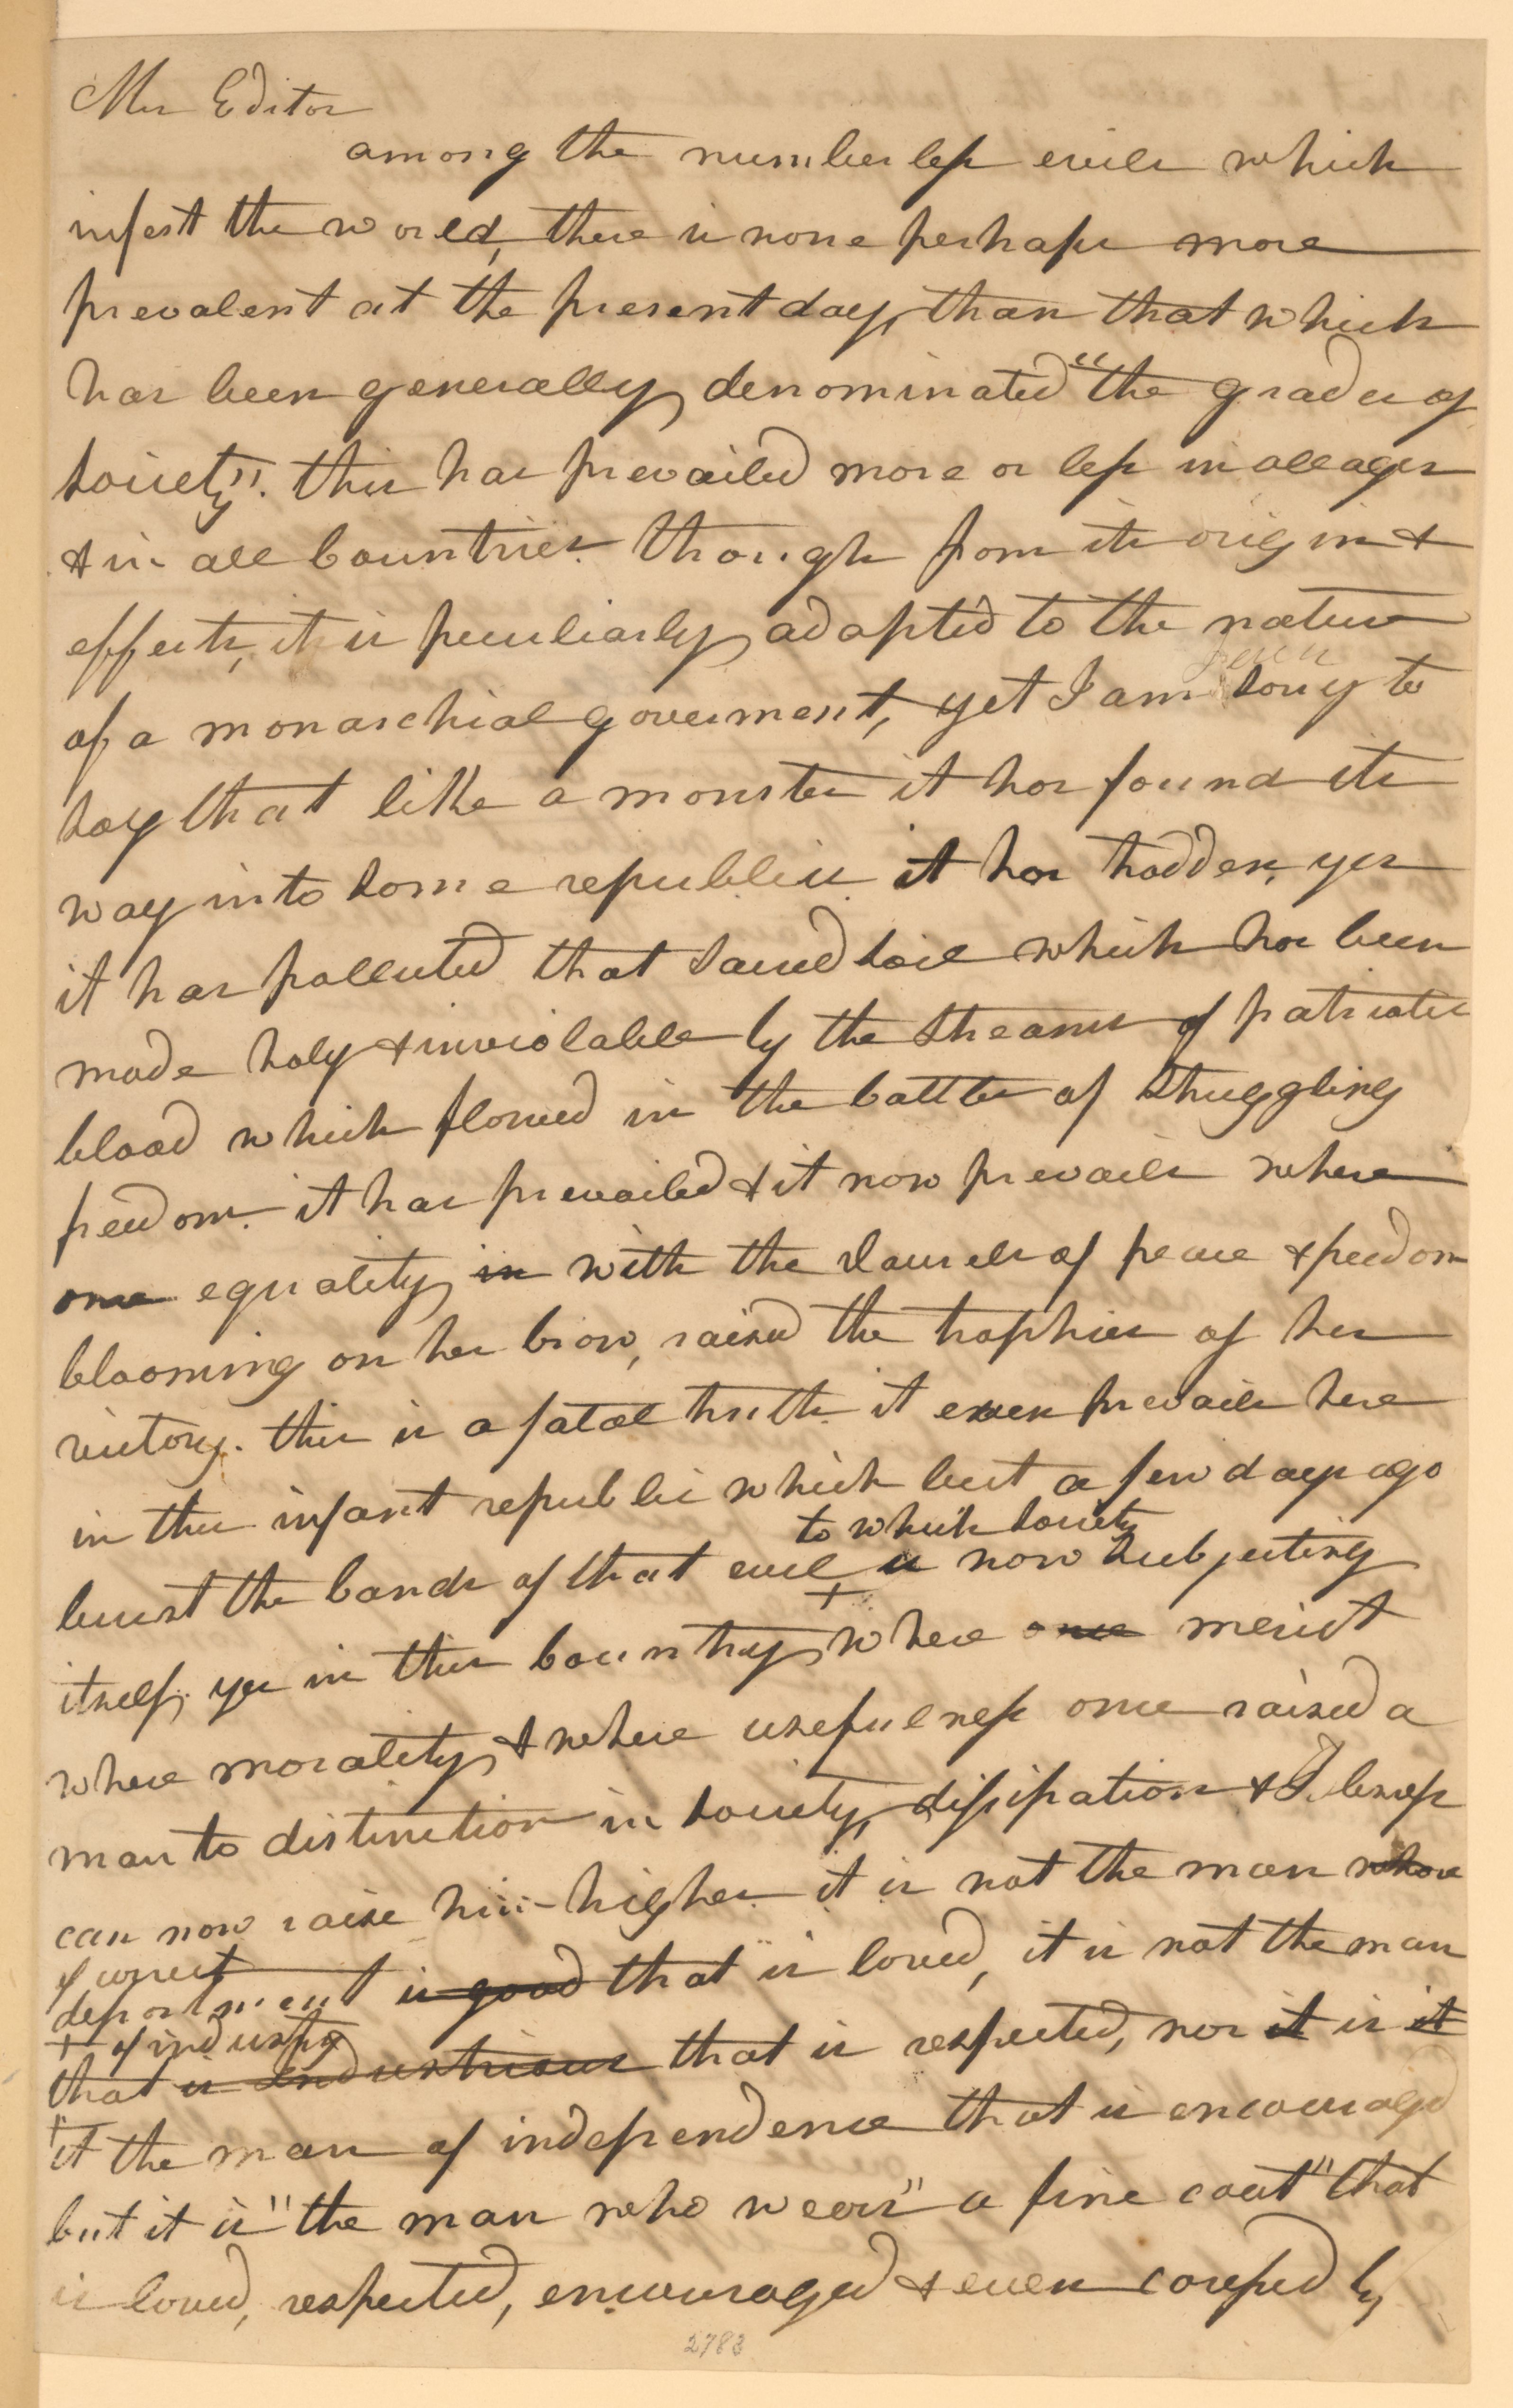 Mr Editor
among the numberless evils which
infest the world, there is none perhaps more
prevalent at the present day, than that which
has been generally denominated "the grades of
society". this has prevailed more or less in all ages
& in all Countries. though from its origin &
effects, it is peculiarly adapted to the nature
of a monarchial goverment, yet I am sorry to
say that like a monster it has found its
way into some republics it has trodden, yes
it has polluted that sacred soil which has been
made holy & inviolable by the streams of patriotic
blood which flowed in the battles of struggling
freedom. it has prevailed & it now prevails where
once equality in with the laurels of peace & freedom
blooming on her brow, raised the trophies of her
victory. this is a fatal truth. it even prevails here
in this infant republic which but a few days ago
to which society
burst the bands of that evil is now subjecting
itself, yes in this Country, where once merit
where morality & where usefulness once raised a
man to distinction in society, dissipation &
can now raise him higher. it is not the man whose
of correct
deportment is good that is loved, it is not the man
+ of industry
that is industrious that is respected, nor it is it
it the man of independence that is encouraged
but it is "the man who wears" a fine coat" that
is loved, respected, encouraged & even caressed by
2783